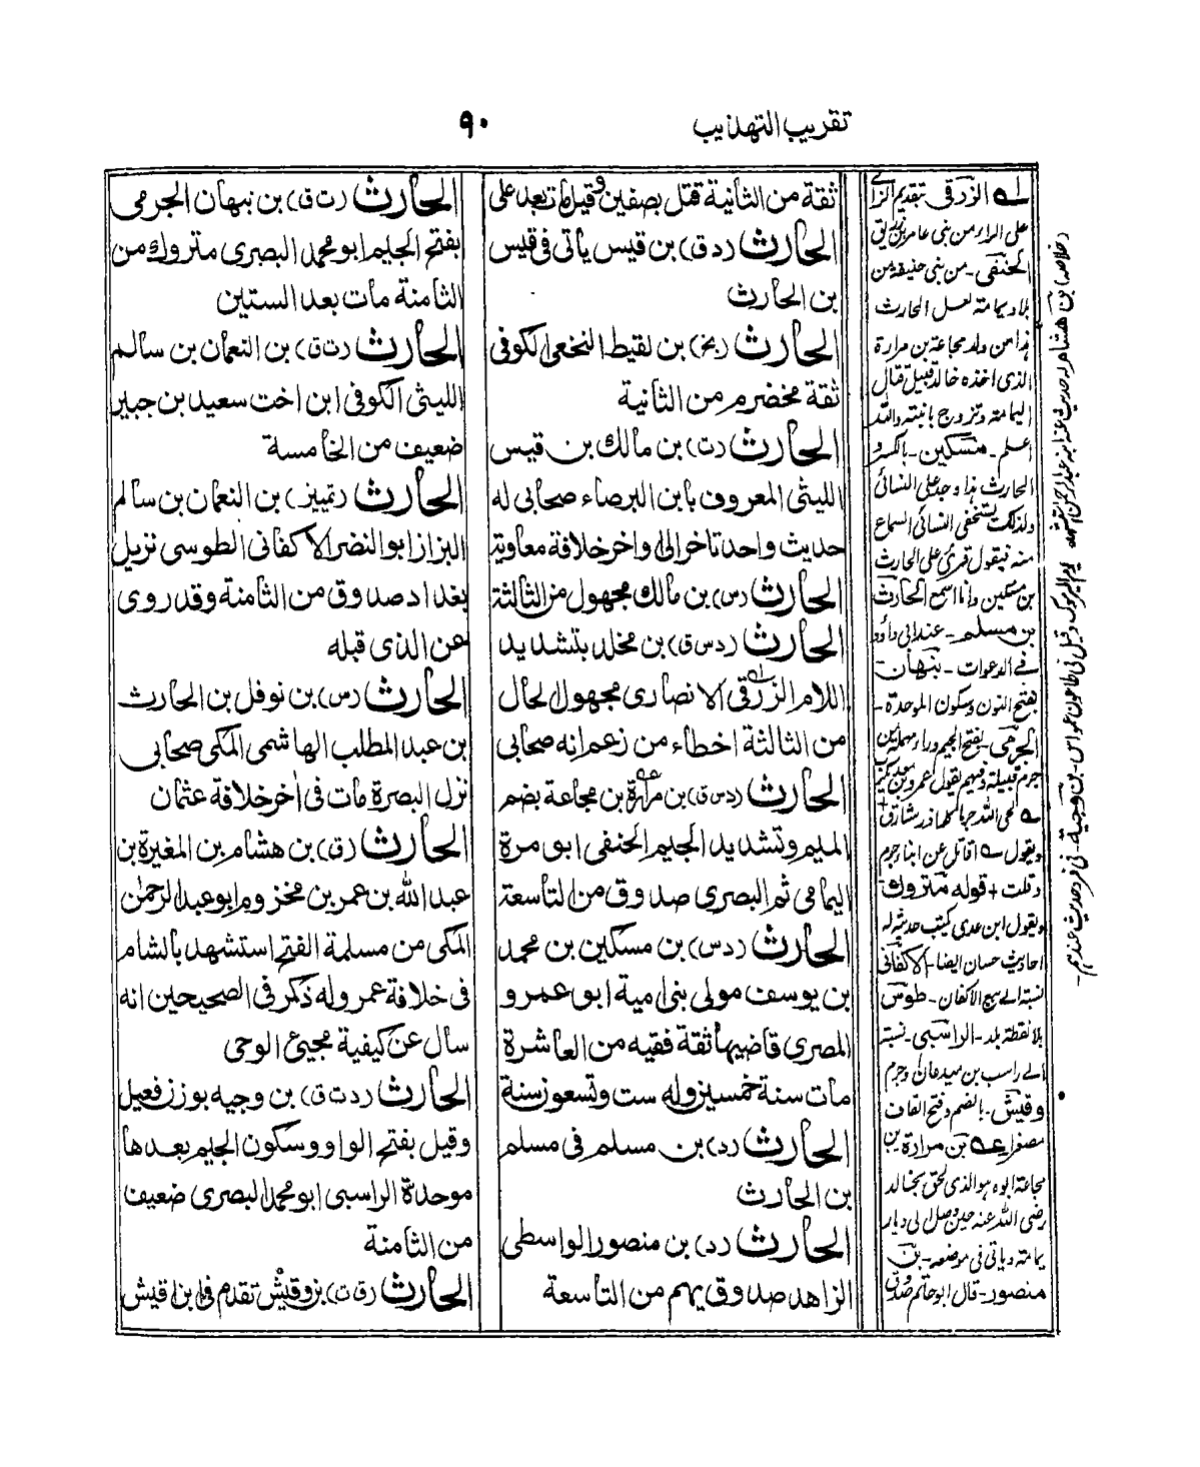 تقريب التهذيب
٩٠
ثقة من الثانية قتل بصفين وقيل مات بعد على
الحارث (د ق) بن قيس ياتى فى قيس
بن الحارث
الحارث (بخ) بن لقيط النخعى الكوفى
ثقة مخضرم من الثانية
الحارث (ت) بن مالك بن قيس
الليثى المعروف بابن البرصاء صحابى له
حديث واحد تاخر الى اواخر خلافة معاوية
الحارث (س) بن مالك مجهول من الثالثة
الحارث (د س ق) بن مخلد بتشديد
اللام الزرقى الانصارى مجهول الحال
من الثالثة اخطاء من زعم انه صحابى
الحارث (د س ق) بن مرة بن مجاعة بضم
الميم وتشديد الجيم الحنفى ابو مرة
اليمامى ثم البصرى صدوق من التاسعة
الحارث (د س) بن مسكين بن محمد
بن يوسف مولى بنى امية ابو عمرو
المصرى قاضيها ثقة فقيه من العاشرة
مات سنة خمسين وله ست وتسعون سنة
الحارث (د) بن مسلم فى مسلم
بن الحارث
الحارث (د) بن منصور الواسطى
الزاهد صدوق يهم من التاسعة
الحارث (ت ق) بن نبهان الجرمى
بفتح الجيم ابو محمد البصرى متروك من
الثامنة مات بعد الستين
الحارث (ت ق) بن النعمان بن سالم
الليثى الكوفى ابن اخت سعيد بن جبير
ضعيف من الخامسة
الحارث (تمييز) بن النعمان بن سالم
البزاز ابو النضر الاكفانى الطوسى نزيل
بغداد صدوق من الثامنة وقد روى
عن الذى قبله
الحارث (س) بن نوفل بن الحارث
بن عبد المطلب الهاشمى المكى صحابى
نزل البصرة مات فى اخر خلافة عثمان
الحارث (ق) بن هشام بن المغيرة بن
عبد الله بن عمر بن مخزوم ابو عبد الرحمٰن
المكى من مسلمة الفتح استشهد بالشام
فى خلافة عمر وله ذكر فى الصحيحين انه
سال عن كيفية مجيئ الوحى
الحارث (د ت ق) بن وجيه بوزن فعيل
وقيل بفتح الواو وسكون الجيم بعدها
موحدة الراسبى ابو محمد البصرى ضعيف
من الثامنة
الحارث (ق ت) بن وقيش تقدم فى ابن اقيش
له الزرقى بتقديم الزاء
على الراء من بنى عامر بن زريق
الحنفى - من بنى حنيفة من
بلاد يمامة لعل الحارث
هذا من ولد مجاعة بن مرارة
الذى اخذه خالد قبيل قتال
اليمامة وتزوج بابنته والله
اعلم - مسكين - بالكسر و
الحارث هذا وجد على النسائى
ولذلك يستخفى النسائى السماع
منه فيقول قرئ على الحارث
بن مسكين وانا اسمع الحارث
بن مسلم - عند ابى داؤد
فى الدعوات - نبهان -
بفتح النون وسكون الموحدة -
الجرمى - بفتح الجيم وراء مهملة من
ويقول له اقاتل عن ابناء جرم
قلت + قوله متروك
ويقول ابن عدى يكتب حديثه له
احاديث حسان ايضا - الاكفانى
نسبة الى بيع الاكفان - طوس
بلا نقطة بلد - الراسبى - نسبة
الى راسب بن ميدعان وجرم
وقيش - بالضم وفتح القاف
مصغرا عه بن مرارة بن
مجاعة ابوه هو الذى لحق بخالد
رضى الله عنه حين وصل الى ديار
يمامة وياتى فى موضعه - بن
منصور - قال ابو حاتم صدوق
(خلاصه) بن هشام له حديث عند ابنه عبد الرحمن استشهد يوم اليرموك وقيل فى طاعون عمواس - بن وجية - فى فرد حديث عندهم -